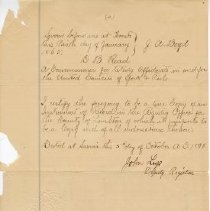 (2)
Sworn before me at Toronto
this tenth day of January } J. A. Boyd
1865.
D B Read
A Commissioner for taking affidavits in and for the
United Counties of York & Peel.
I certify the foregoing to be a true copy of an
instrument of record in the Registry Office for
the County of Lambton of which it purports to
be a copy with all endorsements thereon.
Dated at Sarnia this 3rd day of October A.D.
John
Deputy Registrar